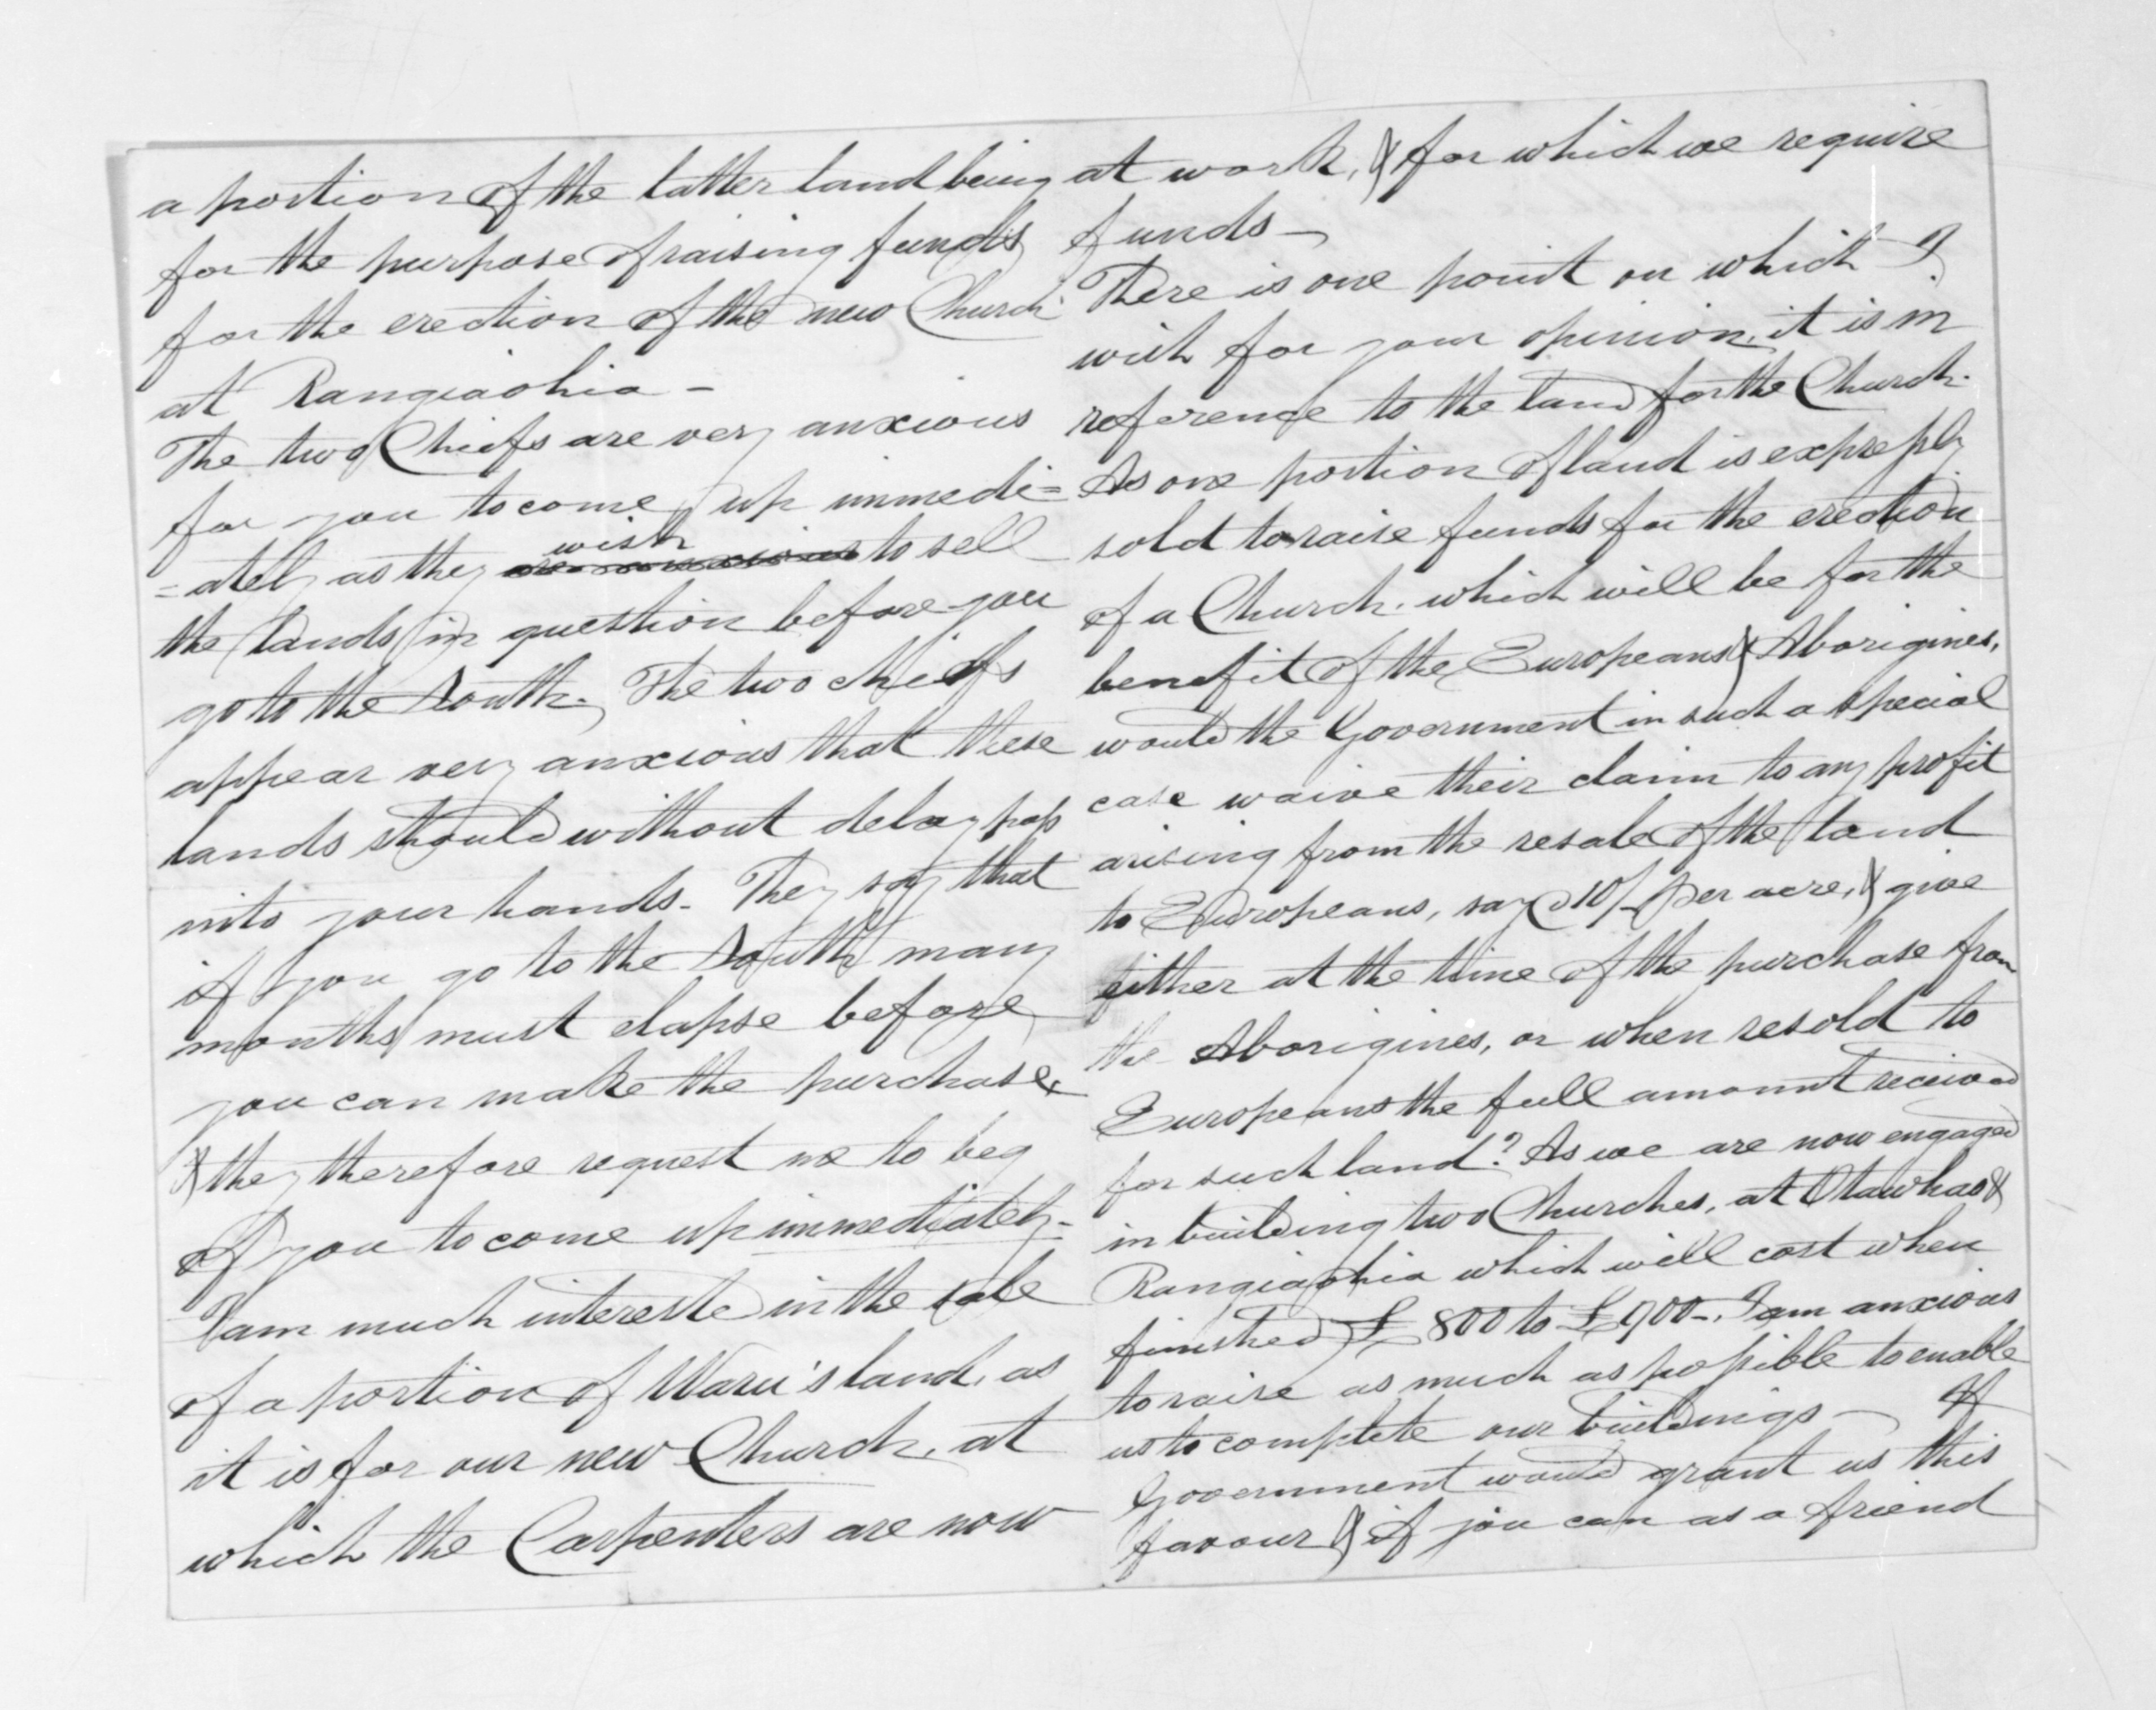 a portion of the latter land being
for the purpose of raising funds
for the erection of the new Church
at Rangiaohia -
The two Chiefs are very anxious
for you to come up immedi=
=ately as they are now anxious wish to sell
the lands in question before you
go to the South. The two chiefs
appear very anxious that these
lands should without delay pass
into your hands. They say that
if you go to the South many
months must elapse before
you can make the purchase,
& they therefore request me to beg
of you to come up immediately -
I am much interested in the sale
of a portion of Waru's land, as
it is for our new Church, at
which the Carpenters are now
at work, & for which we require
funds -
There is one point on which I
wish for your opinion, it is in
reference to the land for the Church.
As one portion of land is expressly
sold to raise funds for the erection
of a Church, which will be for the
benefit of the Europeans & Aborigines,
would the Government in such a special
case waive their claim to any profit
arising from the resale of the land
to Europeans, say @ 10/- per acre, & give
either at the time of the purchase from
the Aborigines, or when resold to
Europeans the full amount received
for such land? As we are now engaged
in building two Churches, at Otawhao &
Rangiaohia which will cost when
finished £800 to £900 -, I am anxious
to raise as much as possible to enable
us to complete our buildings - If
Government would grant us this
favour & if you can as a friend